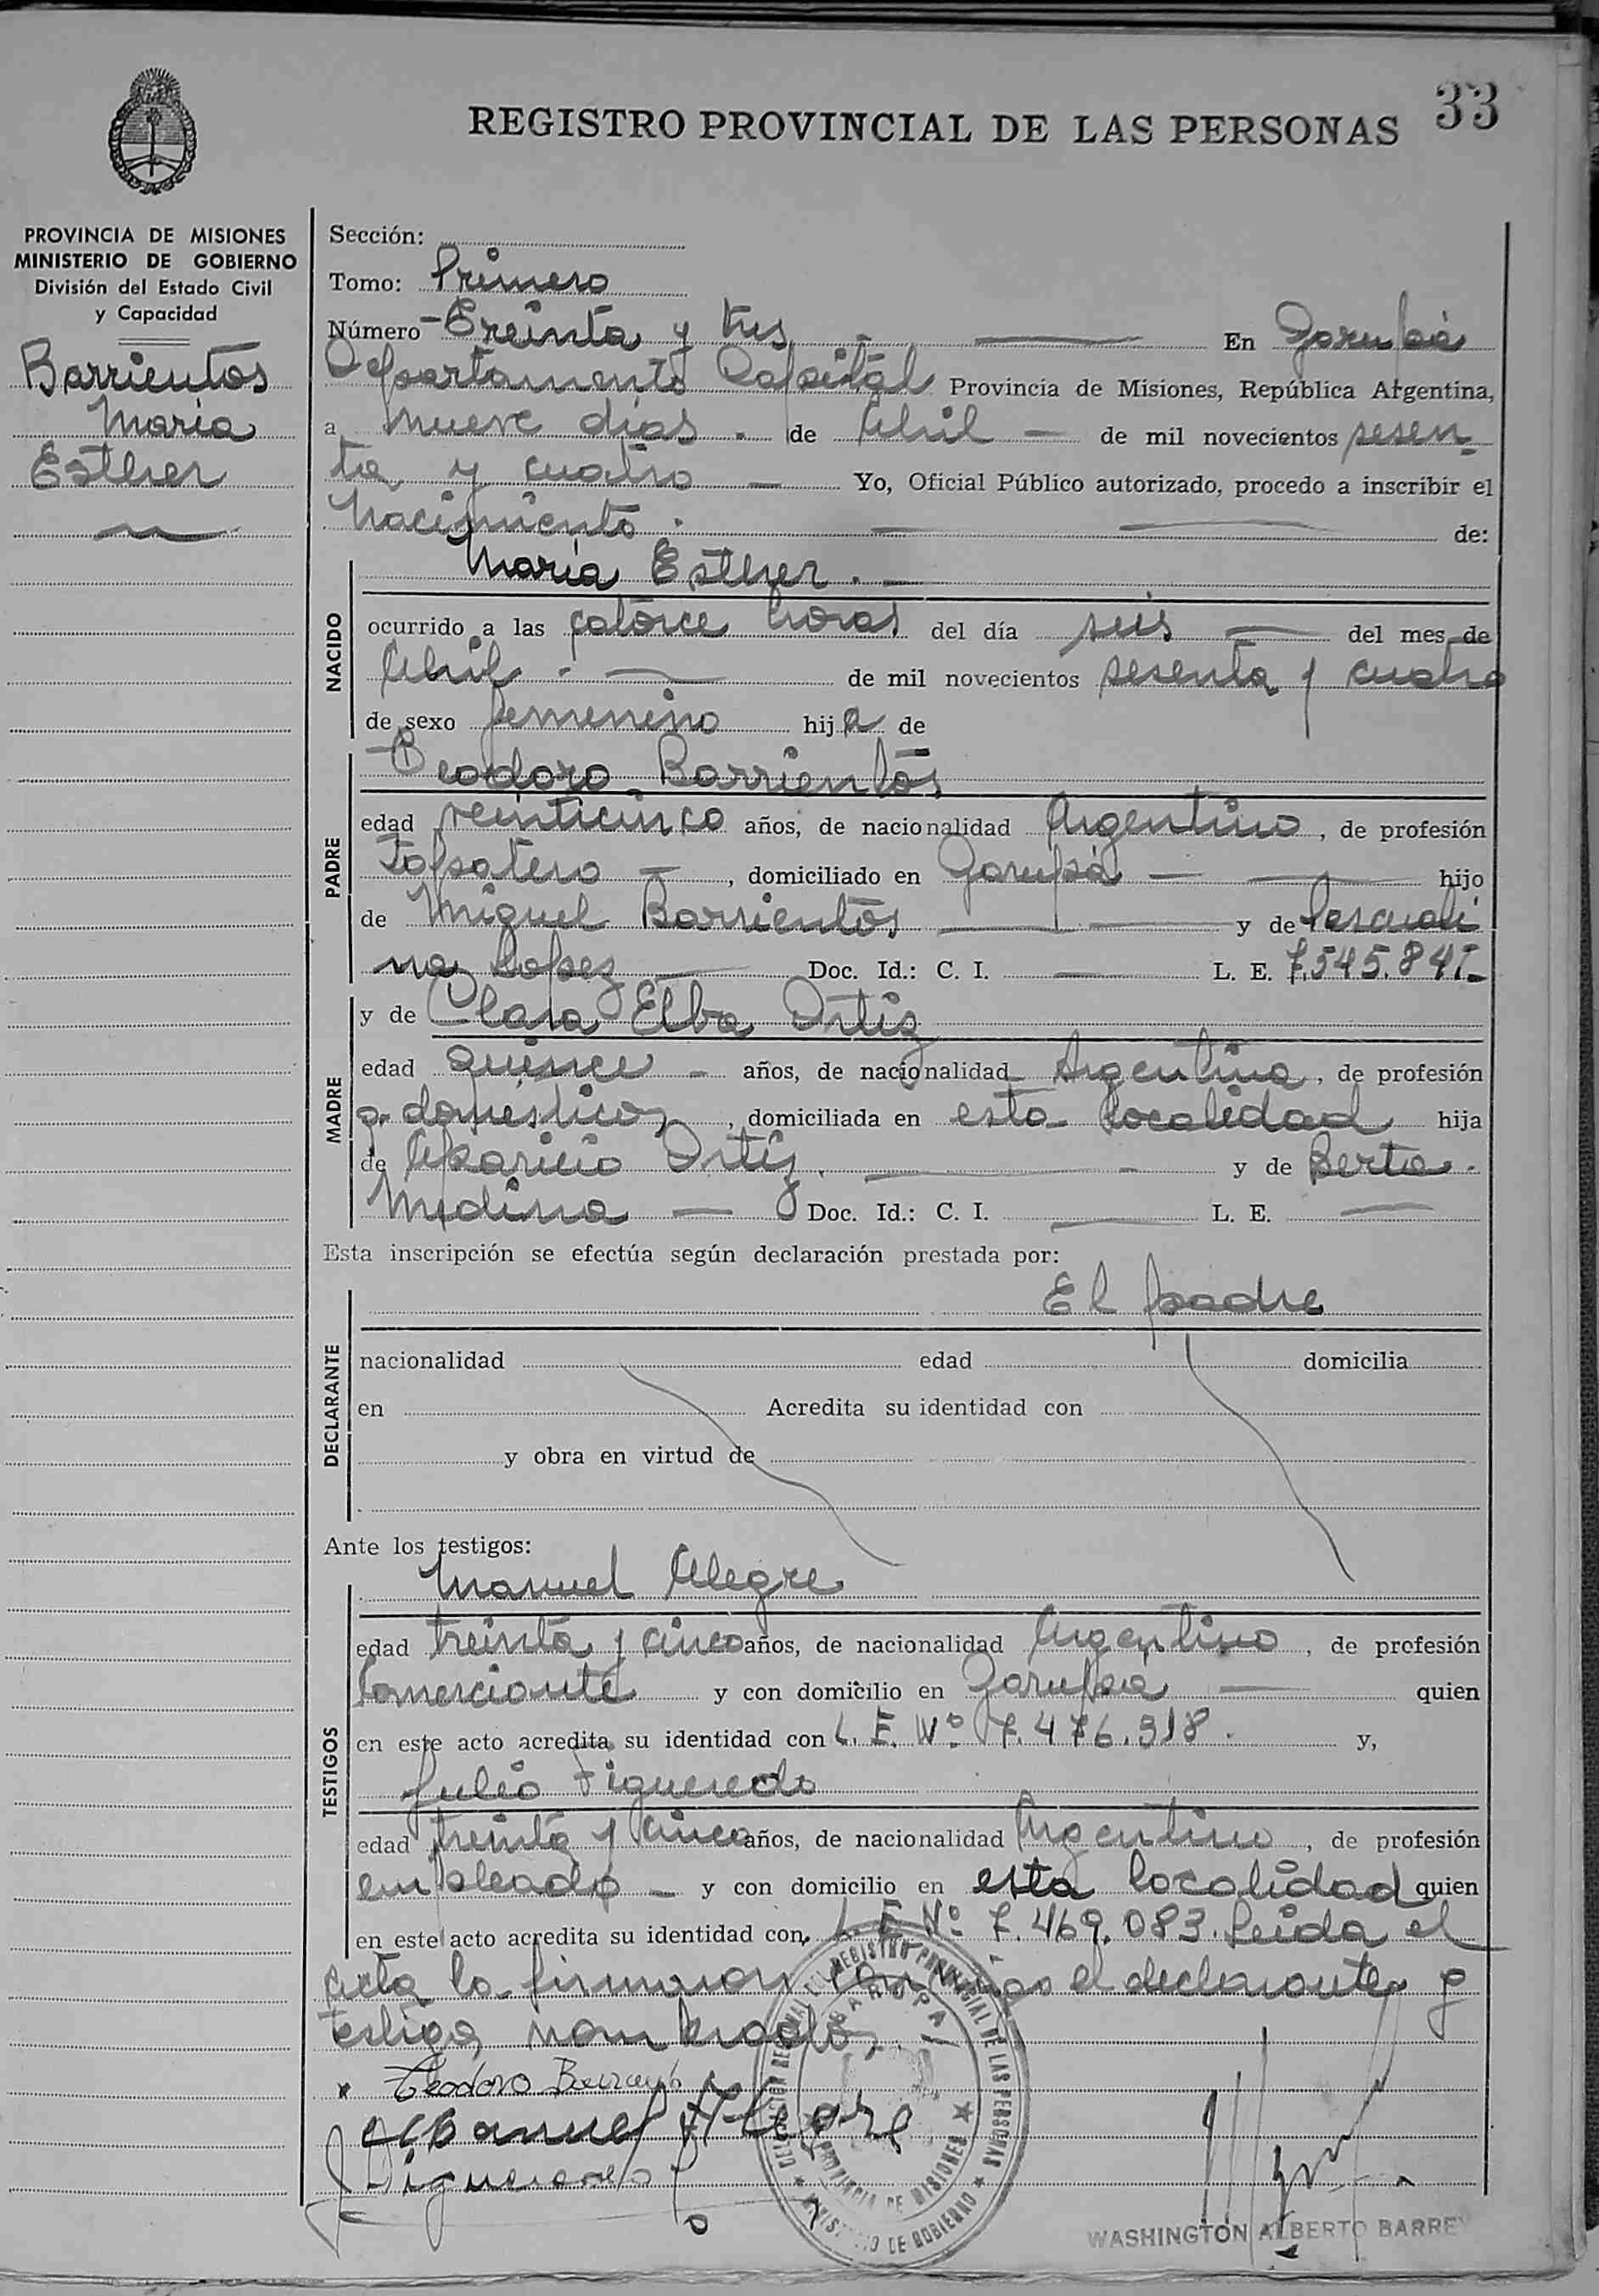 33
REGISTRO PROVINCIAL DE LAS PERSONAS
PROVINCIA DE MISIONES
MINISTERIO DE GOBIERNO
División del Estado Civil
y Capacidad
Barrientos
María
Esther
Sección:
Tomo: Primero
Número Treinta y tres En Garupá
Departamento Capital Provincia de Misiones, República Argentina,
a nueve días de Abril de mil novecientos sesen
ta y cuatro Yo, Oficial Público autorizado, procedo a inscribir el
Nacimiento de:
María Esther
NACIDO
ocurrido a las catorce horas del día seis del mes de
Abril de mil novecientos sesenta y cuatro
de sexo femenino hija de
Teodoro Barrientos
PADRE
edad veinticinco años, de nacionalidad Argentino, de profesión
Zapatero, domiciliado en Garupá hijo
de Miguel Barrientos y de Pascuali
na Lopez Doc. Id.: C. I. L. E. 7.545.841
y de Clara Elba Ortiz
MADRE
edad quince años, de nacionalidad Argentina, de profesión
q. domésticos, domiciliada en esta localidad hija
de Aparicio Ortiz y de Berta
Medina Doc. Id.: C. I. L. E.
Esta inscripción se efectúa según declaración prestada por:
El padre
DECLARANTE
nacionalidad edad domicilia
en Acredita su identidad con
y obra en virtud de
Ante los testigos:
Manuel Alegre
TESTIGOS
edad treinta y cinco años, de nacionalidad Argentino, de profesión
Comerciante y con domicilio en Garupá quien
en este acto acredita su identidad con L. E. Nº 7.476.318. y,
Julio Figueredo
edad treinta y cinco años, de nacionalidad Argentino, de profesión
empleado y con domicilio en esta localidad quien
en este acto acredita su identidad con L. E. Nº 7.469.083. Leída el
acta la firmaron conmigo el declarante y
testigos nombrados
Teodoro Barrientos
Manuel Alegre
J Figueredo
DELEGACION REGIONAL DEL REGISTRO PROVINCIAL DE LAS PERSONAS
GARUPA
PROVINCIA DE MISIONES
MINISTERIO DE GOBIERNO
WASHINGTON ALBERTO BARRE